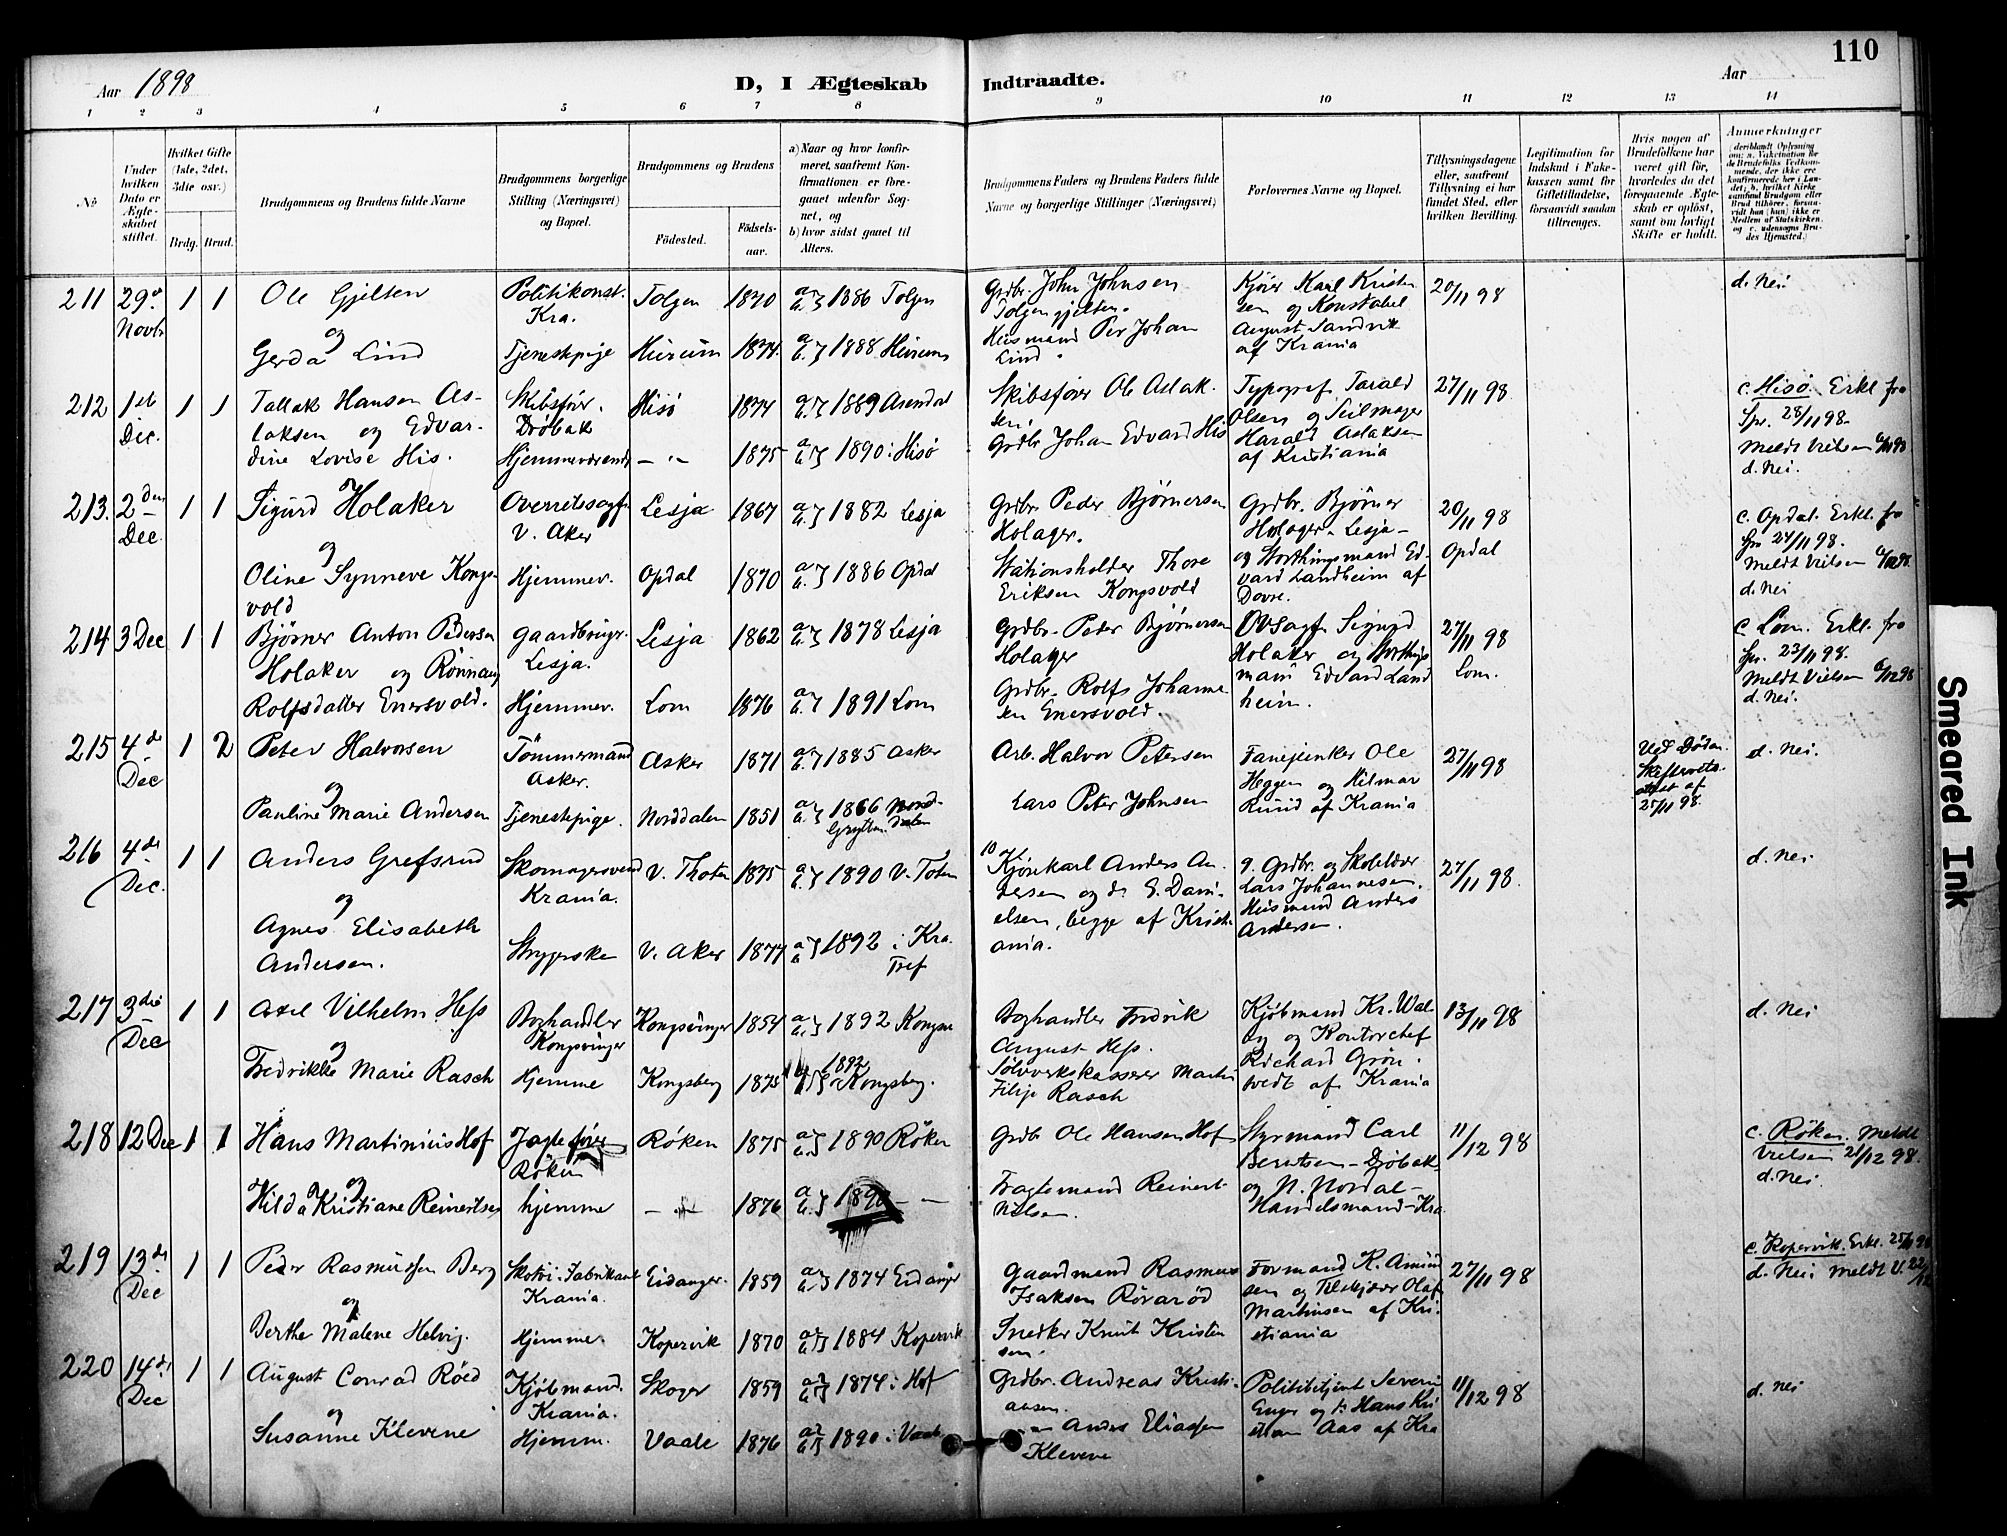 110
Aar 1898
D, I Ægteskab Indtraadte.
Aar
1 2 3 4 5 6 7 8 9 10 11 12 13 14
No
Under hvilken Dato er Ægteskabet stiftet.
Hvilket Gifte (1ste, 2det, 3die osv.)
Brdg. Brud.
Brudgommens og Brudens fulde Navne
Brudgommens borgerlige Stilling (Næringsvei) og Bopæl.
Brudgommens og Brudens
Födested.
Födsels-aar.
a) Naar og hvor konfirmeret, saafremt Konfirmationen er foregaaet udenfor Sognet, og
b) hvor sidst gaaet til Alters.
Brudgommens Faders og Brudens Faders fulde Navne og borgerlige Stillinger (Næringsvei)
Forlovernes Navne og Bopæl.
Tillysningsdagene eller, saafremt Tillysning ei har fundet Sted, efter hvilken Bevilling.
Legitimation for Indskud i Fakekassen samt for Giftetilladelse, forsaavidt saadan tiltrænges.
Hvis nogen af Brudefolkene har været gift för, hvorledes da det foregaaende Ægteskab er oplöst, samt om lovligt Skifte er holdt.
Anmerkninger
211 29de Novbr 1 1 Ole Gjelten Politikonst. Kra. Tolgen 1870 1886 Tolgen Grdbr. John Johnsen Tolgengjelten. Kjører Karl Kristensen og Konstabel August Sandvik af Krania 20/11 98 d. Nei
og Gerda Lind Tjenestepige Hurum 1874. 1888 Hurum Husmand Per Johan Lind
212 1ste Dec. 1 1 Tallak Hansen Aslaksen og Edvardine Lovise His. Skibsfør. Drøbak Hisö 1874 1889 Arendal Skibsfører Ole Aslaksen. Typograf Tarald Olsen og Seilmager Harald Aslaksen af Kristiania 27/11 98 c. Hisö. Erkl. fra Spr. 28/11 98. Meldt Vielsen d. Nei.
Hjemmeværende — " — 1875 1890 i Hisø Grdbr Johan Edvard His
213. 2den Dec. 1 1 Sigurd Holaker Overretssagf. V. Aker Lesja 1867 1882 Lesja Grdbr. Peder Bjørnersen Holager. Grdbr. Bjørner Holager - Lesja - og Storthingsmand Edvard Landheim af Dovre. 20/11 98 Opdal c. Opdal. Erkl. fra Spr 24/11 98. Meldt Vielsen d. Nei
og Oline Synneve Kongsvold Hjemmev. Opdal 1870 1886 Opdal Stationsholder Thore Eriksen Kongsvold
214 3 Dec 1 1 Bjørner Anton Pedersen Holaker og Rønnaug Rolfsdatter Enersvold. Gaardbruger. Lesja. Lesja 1862 1878 Lesja Grdbr. Peder Bjørnersen Holager Ovsagf. Sigurd Holaker og Storthingsmand Edvard Landheim. 27/11 98 Lom. c. Lom. Erkl. fra Spr. 23/11 98. Meldt Vielsen 6/12 98 d. Nei.
Hjemmev. Lom 1876 1891 Lom Grdbr. Rolf Johannesen Enersvold.
215 4de Dec 1 2 Peter Halvorsen Tömmermand Asker. Asker 1871 1885 Asker Arb. Halvor Petersen Fanejunker Ole Heggen og Hilmar Ruud af Krania 27/11 98 Ved Døden. Skifteretsattest af 25/11 98. d. Nei.
og Pauline Marie Andersen Tjenestepige. Norddalen 1851 1866 Norddalen Grytten Lars Peter Johnsen
216 4de Dec. 1 1 Anders Grefsrud Skomagersvend Krania. V. Thoten 1875 1890 V. Toten 10 Kjørekarl Anders Andersen og do E. Danielsen, begge af Kristiania. 9. Grdbr. og Skolelærer Lars Johannesen. Husmand Anders Andersen. 27/11 98. d. Nei
og Agnes Elisabeth Andersen. Strygerske V. Aker 1877 1892 i Kra. Tref
217 3die Dec 1 1 Axel Vilhelm Hess Boghandler Kongsvinger Kongsvinger 1854 1892 Kongsv Boghandler Fredrik August Hess. Kjöbmand Kr. Walby og Kontorchef Richard Grøntvedt af Krania 13/11 98 d. Nei
og Fredrikke Marie Rasch Hjemme Kongsberg 1875 1892 Kongsberg. Sølvverkskasserer Martin Filip Rasch
218 12 Dec 1 1 Hans Martinius Hof Jagtefører Røken Røken 1875 1890 Røken Grdbr Ole Hansen Hof Styrmand Carl Berntsen - Drøbak og N. Nordal - Handelsmand - Kra 11/12 98 c. Røken. Meldt Vielsen 21/12 98. d. Nei.
og Hilda Kristiane Reinertsen hjemme — " — 1876 1890 — — Fragtemand Reinert Nilsen.
219 13de Dec 1 1 Peder Rasmussen Berg Skotøi-Fabrikant Krania. Eidanger. 1859 1874 Eidanger Gaardmand Rasmus Isaksen Rövaröd Formand K. Amundsen og Filskjærer Olaf Martinsen af Kristiania 27/11 98 c. Kopervik. Erkl. 25/11 98 d. Nei Meldt V. 22/12
og Berthe Malene Helvig. Hjemme. Kopervik 1870 1884 Kopervik Snedker Knut Kristensen.
220 14de Dec 1 1 August Conrad Röed Kjöbmand. Krania. Skoger 1859 1874 i Hof Grdbr. Andreas Kristiansen. Politibetjent Severin Enger og Hans Kristian Aas af Kra 11/12 98 d. Nei
og Susanne Klevene Hjemm. Vaale 1876 1890 i Vaale — Anders Eliassen Klevene
Smeared Ink